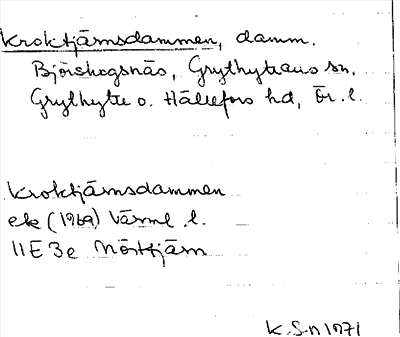 Kroktjärnsdammen, damm.
Björskogsnäs, Grythyttans sn.
Grythytte o. Hällefors hd, Ör. l.
Kroktjärnsdammen
ek (1969) Värml. l.
11E 3e Mörttjärn
K. S-n 1971